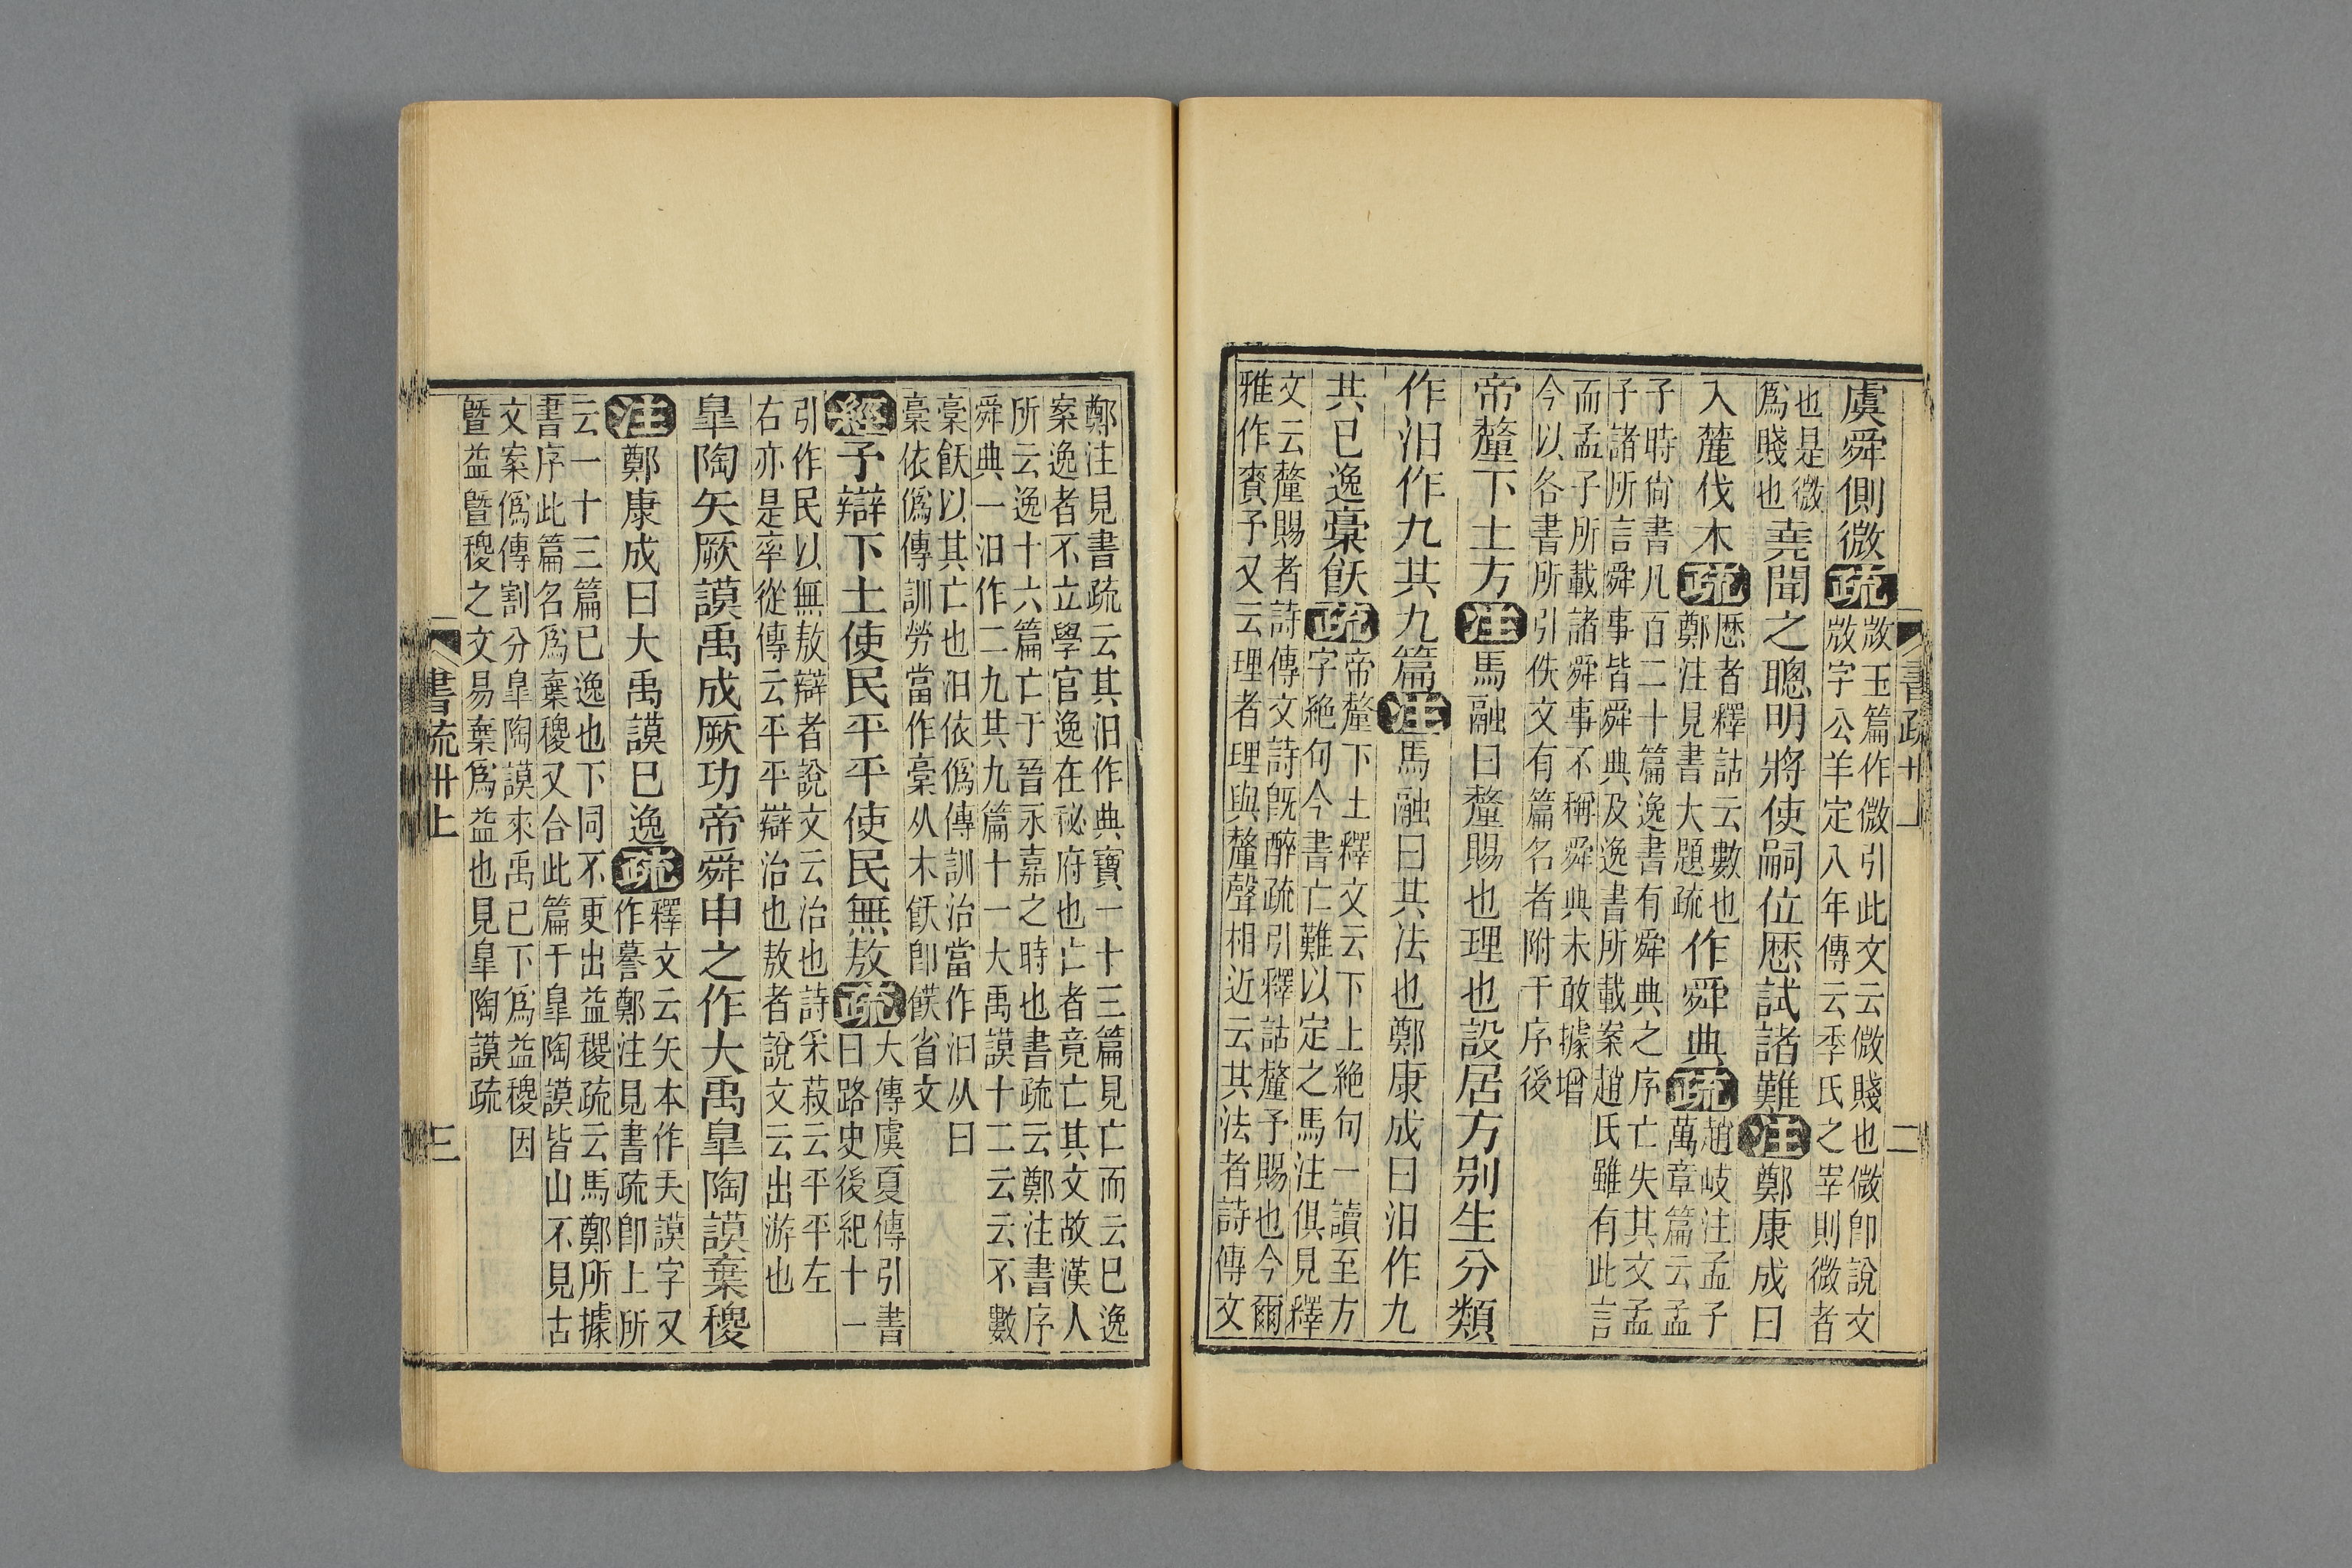 書疏卅上　二
虞舜側微疏
㪣玉篇作微引此文云微賤也微卽說文
㪣字公羊定八年傳云季氏之宰則微者
也是微
爲賤也
堯聞之聰明將使嗣位歷試諸難注鄭康成曰
入麓伐木疏
歷者釋詁云數也
鄭注見書大題疏
作舜典疏
趙岐注孟子
萬章篇云孟
子時尙書凡百二十篇逸書有舜典之序亡失其文孟
子諸所言舜事皆舜典及逸書所載案趙氏雖有此言
而孟子所載諸舜事不稱舜典未敢據增
今以各書所引佚文有篇名者附于序後
帝釐下土方注馬融曰釐賜也理也設居方別生分類
作汩作九共九篇注馬融曰共法也鄭康成曰汩作九
共已逸槀飫疏
帝釐下土釋文云下上絶句一讀至方
字絶句今書亡難以定之馬注俱見釋
文云釐賜者詩傳文詩旣醉疏引釋詁釐予賜也今爾
雅作賚予又云理者理與釐聲相近云其法者詩傳文
鄭注見書疏云其汩作典寶一十三篇見亡而云已逸
案逸者不立學官逸在祕府也亡者竟亡其文故漢人
所云逸十六篇亡于晉永嘉之時也書疏云鄭注書序
舜典一汩作二九共九篇十一大禹謨十二云云不數
槀飫以其亡也汩依僞傳訓治當作汩从曰
槀依僞傳訓勞當作槀从木飫卽䬴省文
經予辯下土使民平平使民無敖疏
大傳虞夏傳引書
曰路史後紀十一
引作民以無敖辯者說文云治也詩采菽云平平左
右亦是率從傳云平平辯治也敖者說文云出游也
皐陶矢厥謨禹成厥功帝舜申之作大禹皐陶謨棄稷
注鄭康成曰大禹謨已逸疏
釋文云矢本作夭謨字又
作謩鄭注見書疏卽上所
云一十三篇已逸也下同不更出益稷疏云馬鄭所據
書序此篇名爲棄稷又合此篇于皐陶謨皆山不見古
文案僞傳割分皐陶謨來禹已下爲益稷因
曁益曁稷之文易棄爲益也見皐陶謨疏
書疏卅上　三